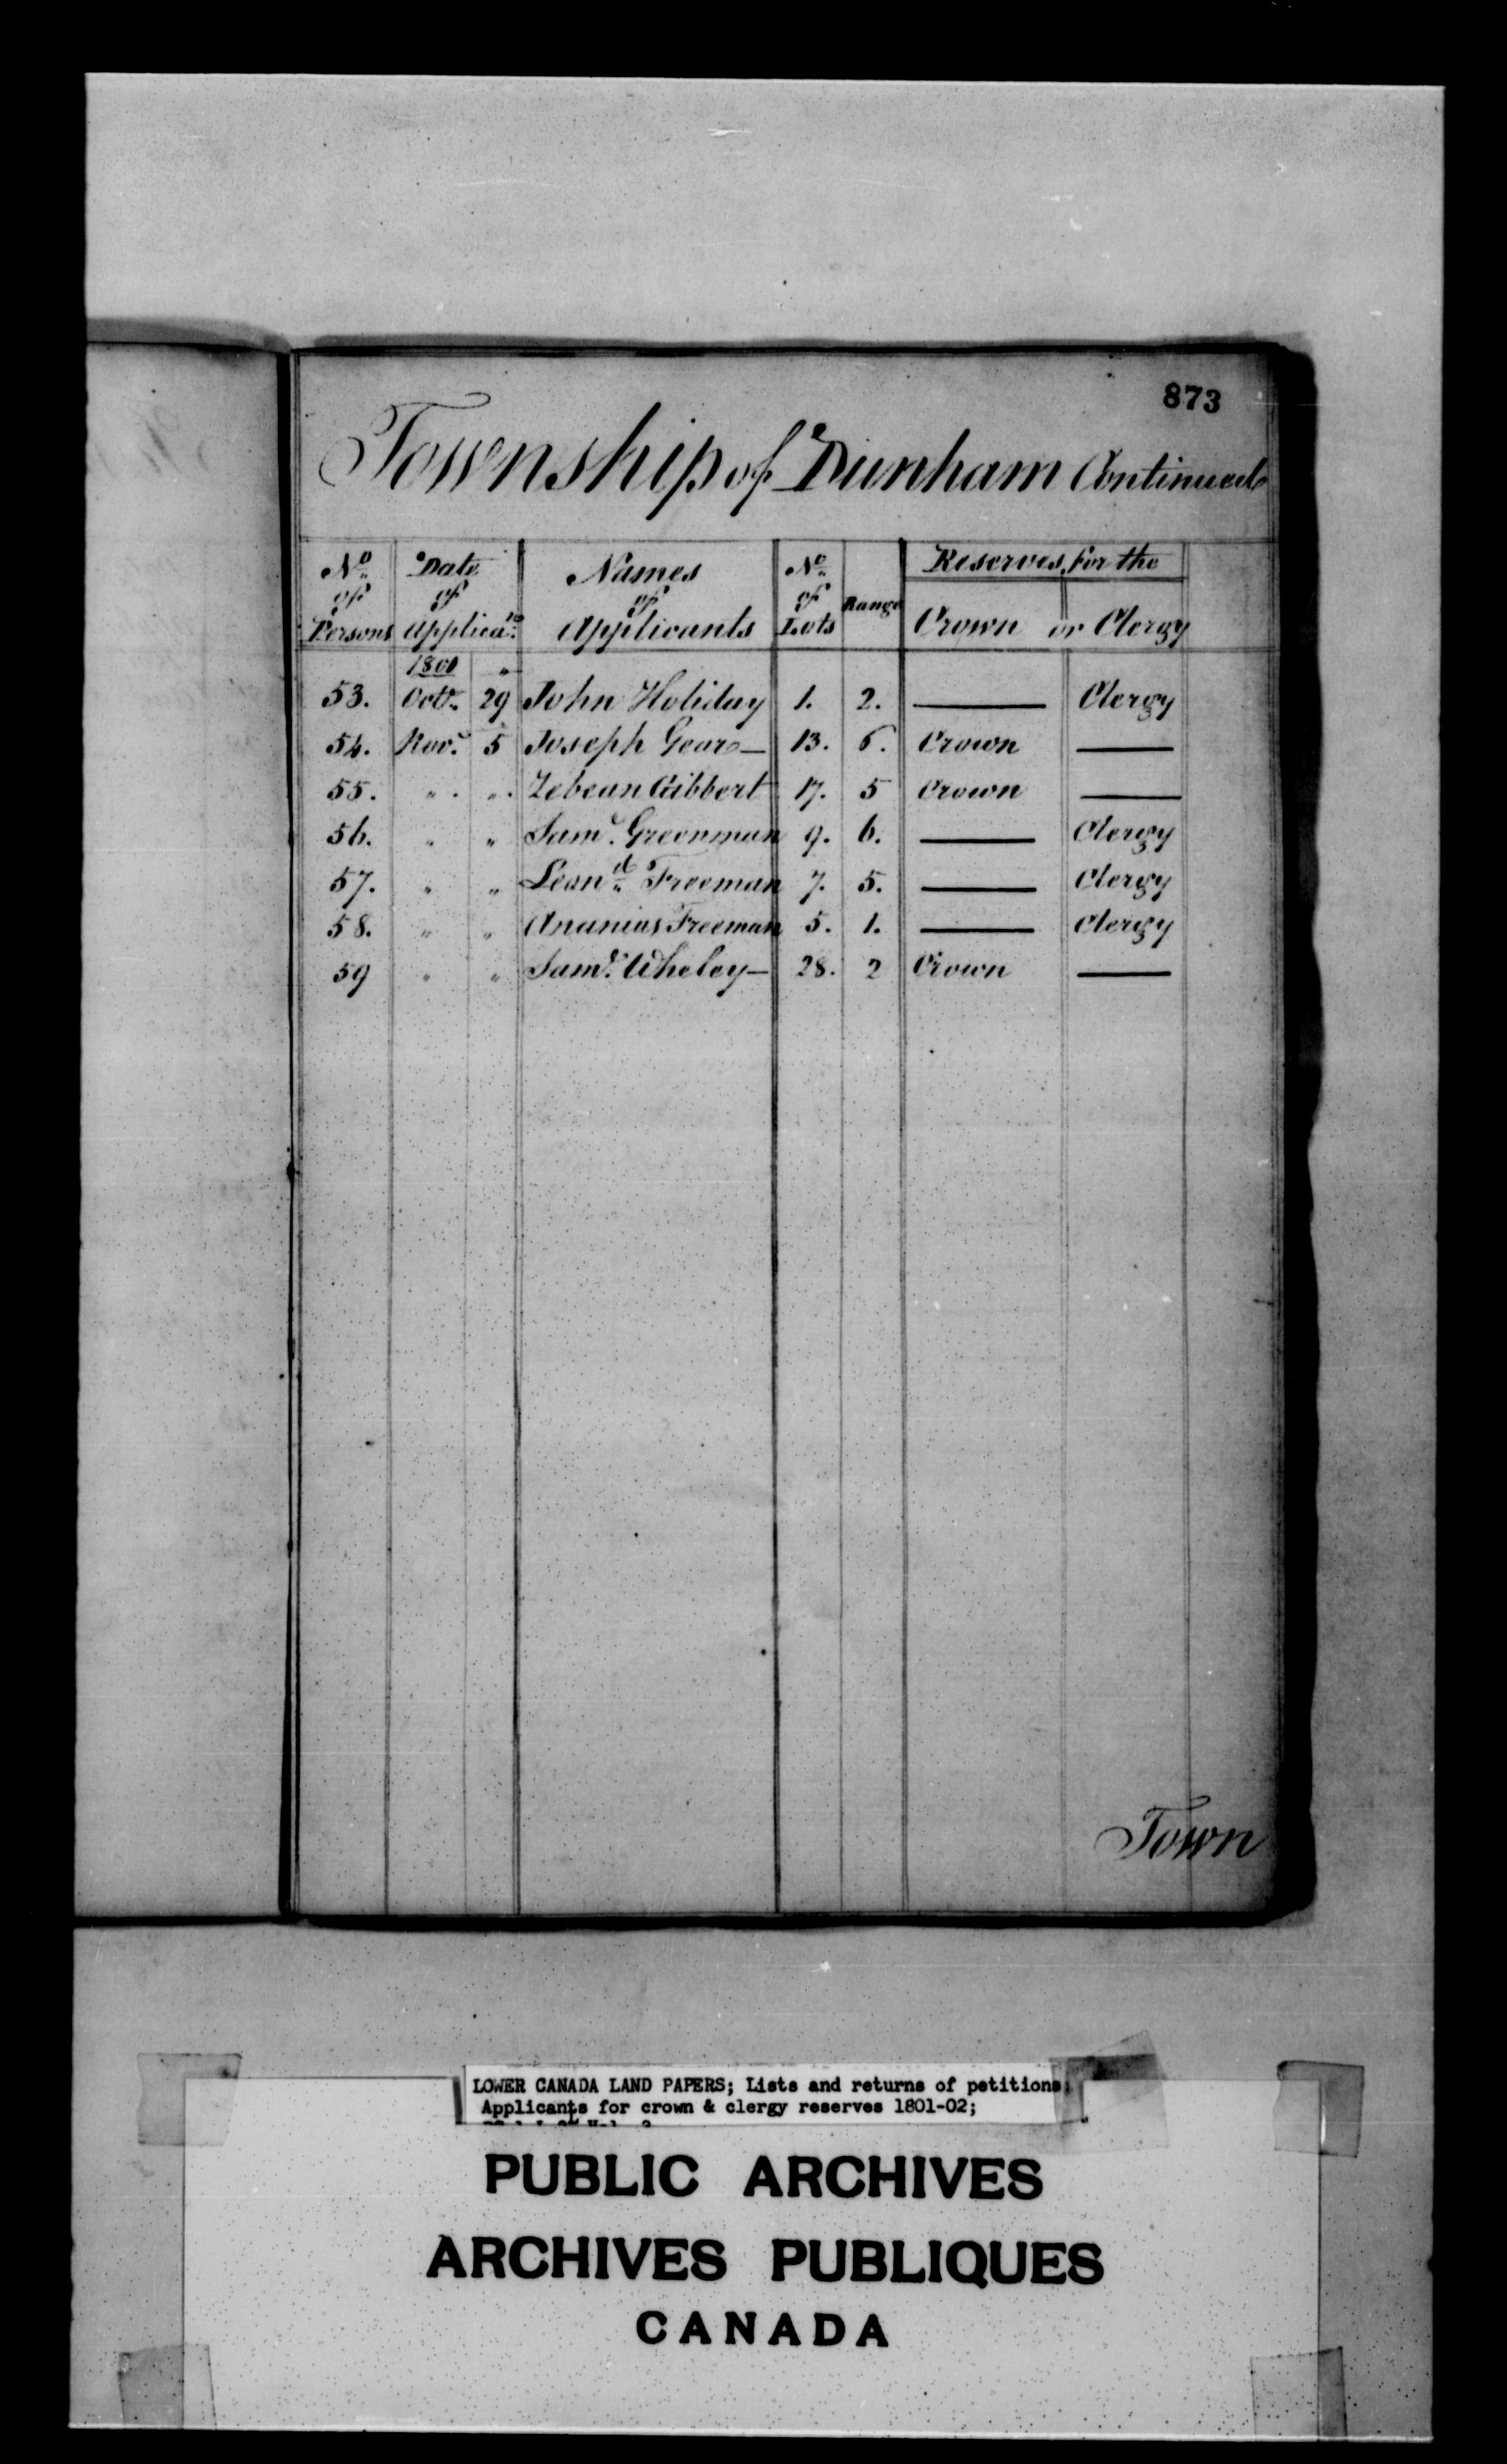 873
Township of Dunham Continued
No of Persons | Date of Applica.n | Names of Applicants | No of Lots | Range | Reserves for the Crown or Clergy
1801 "
53. Octr. 29 John Holiday 1. 2. — Clergy
54. Novr. 5 Joseph Gear — 13. 6. Crown —
55. " " Zebean Gibbert 17. 5 Crown —
56. " " Saml. Greenman 9. 6. — Clergy
57. " " Leand. Freeman 7. 5. — Clergy
58. " " Ananias Freeman 5. 1. — Clergy
59 " " Saml. Wheley — 28. 2 Crown —
Town
LOWER CANADA LAND PAPERS; Lists and returns of petitions;
Applicants for crown & clergy reserves 1801-02;
PUBLIC ARCHIVES
ARCHIVES PUBLIQUES
CANADA